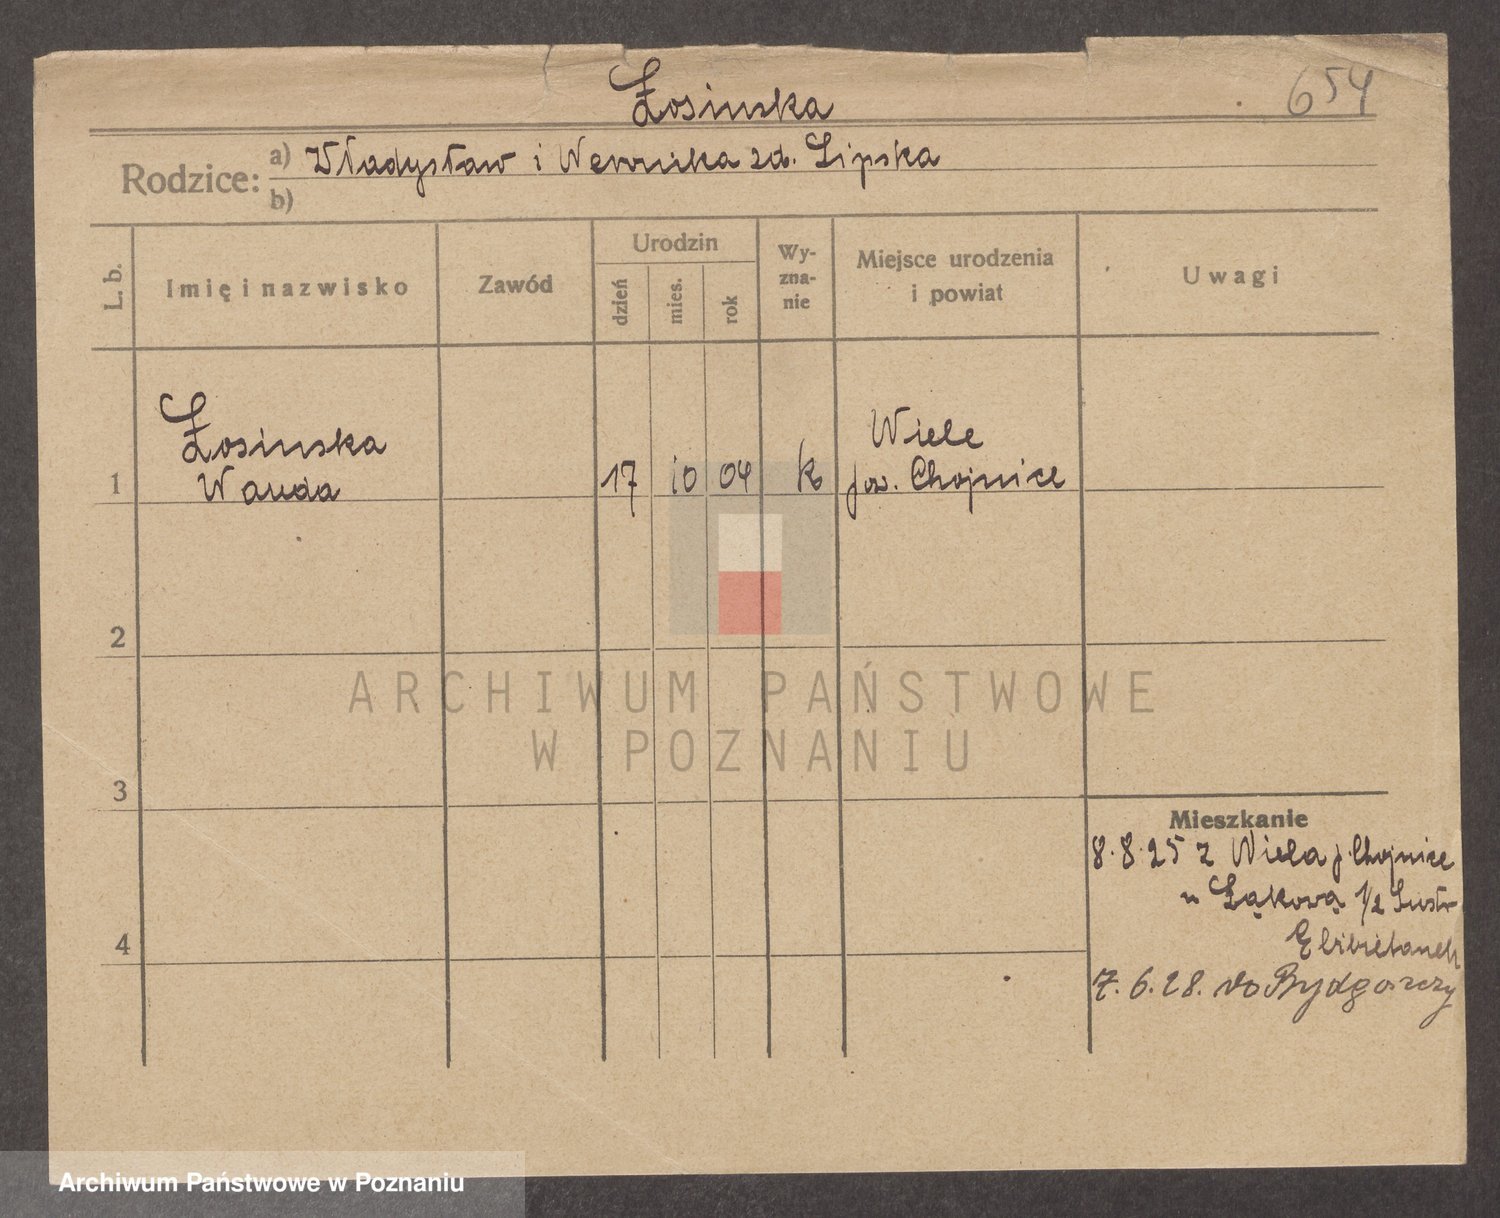 Łosinska
654
Rodzice: a) Władysław i Weronika zd. Lipska
b)
L. b.
Imię i nazwisko
Zawód
Urodzin
dzień
mies.
rok
Wy-
zna-
nie
Miejsce urodzenia
i powiat
Uwagi
1
Łosinska
Wanda
17
10
04
k
Wiele
pow. Chojnice
2
3
4
ARCHIWUM PAŃSTWOWE
W POZNANIU
Mieszkanie
8.8.25 z Wiela p. Chojnice
Łąkową 1/2
Elżbietanek
7.6.28. do Bydgoszczy
Archiwum Państwowe w Poznaniu